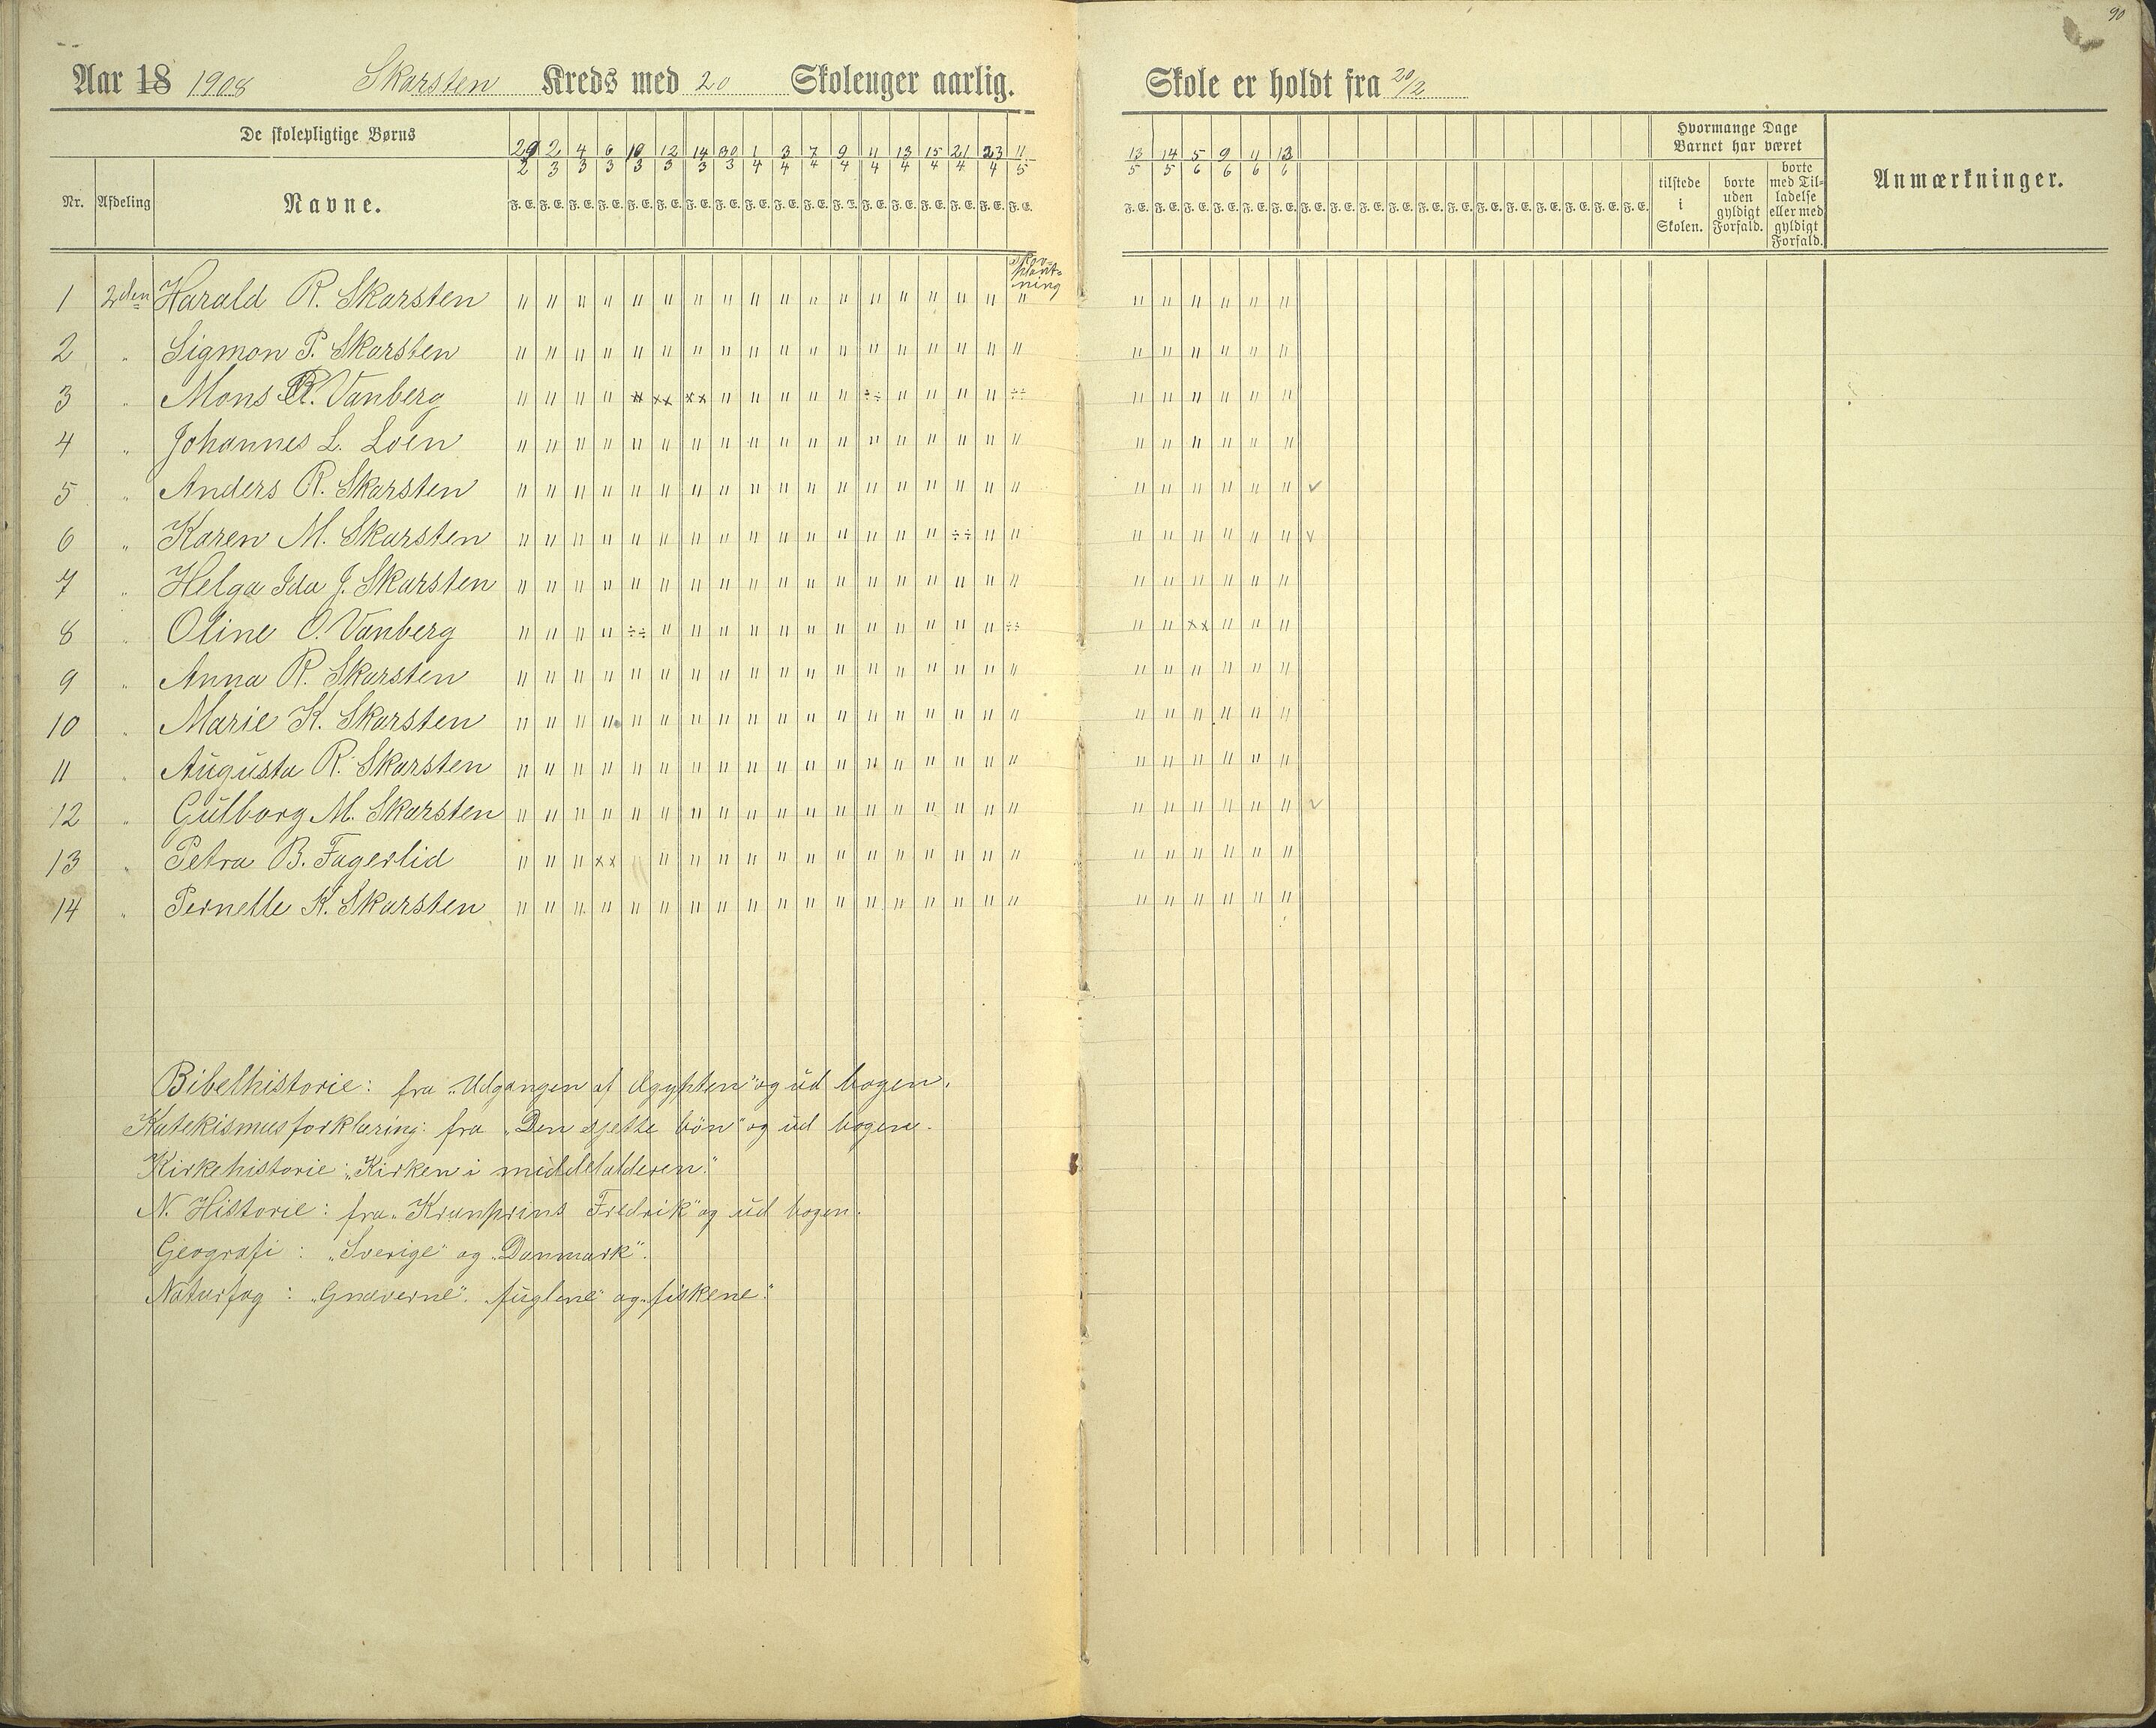 90
Aar 18 1908 Skarsten Kreds med 20 Skoleuger aarlig. Skole er holdt fra 20/2
De skolepligtige Børns
Hvormange Dage Barnet har været
29/2 2/3 4/3 6/3 10/3 12/3 14/3 30/3 1/4 3/4 7/4 9/4 11/4 13/4 15/4 21/4 23/4 11/5 13/5 14/5 5/6 9/6 11/6 13/6
Nr. Afdeling Navne.
F. E. F. E. F. E. F. E. F. E. F. E. F. E. F. E. F. E. F. E. F. E. F. E. F. E. F. E. F. E. F. E. F. E. F. E.
F. E. F. E. F. E. F. E. F. E. F. E. F. E. F. E. F. E. F. E. F. E. F. E. F. E. F. E. F. E. F. E. F. E. F. E.
tilstede i Skolen.
borte uden gyldigt Forfald.
borte med Tilladelse eller med gyldigt Forfald.
Anmærkninger.
Skov=
plant=
ning
1 2den Harald R. Skarsten
2 " Sigmon P. Skarsten
3 " Mons R. Vanberg
4 " Johannes L. Loen
5 " Anders R. Skarsten
6 " Karen M. Skarsten
7 " Helga Ida J. Skarsten
8 " Oline O. Vanberg
9 " Anna R. Skarsten
10 " Marie K. Skarsten
11 " Augusta R. Skarsten
12 " Gulborg M. Skarsten
13 " Petra B. Fagerlid
14 " Pernelle K. Skarsten
Bibelhistorie: fra "Udgangen af Ægypten" og ud bogen.
Katekismusforklaring: fra "Den sjette bön" og ud bogen.
Kirkehistorie: "Kirken i middelalderen."
N. Historie: fra "Kronprins Fredrik" og ud bogen.
Geografi: "Sverige" og "Danmark".
Naturfag: "Gnaverne". "fuglene" og "fiskene."